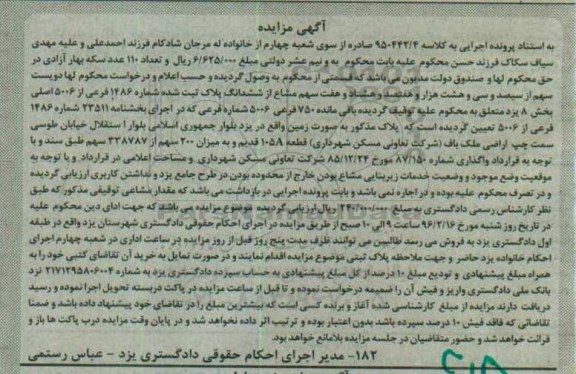 آگهی مزایده
به استناد پرونده اجرایی به کلاسه ۹۵۰۴۴۲/۴ صادره از سوی شعبه چهارم از خانواده له مرجان شادکام فرزند احمدعلی و علیه مهدی
سیاف سکاک فرزند حسن محکوم علیه بابت محکوم به و نیم عشر دولتی مبلغ ۶/۶۲۵/۰۰۰ ریال و تعداد ۱۱۰ عدد سکه بهار آزادی در
حق محکوم لها و صندوق دولت مدیون می باشد که قسمتی از محکوم به وصول گردیده و حسب اعلام و درخواست محکوم لها دویست
سهم از سیصد و سی و هشت هزار و هفتصد و هشتاد و هفت سهم مشاع از ششدانگ پلاک ثبت شده شماره ۱۴۸۶ فرعی از ۵۰۰۶ اصلی
بخش ۸ یزد متعلق به محکوم علیه توقیف گردیده باقی مانده ۷۵۰ فرعی ۵۰۰۶ شماره فرعی که در اجرای بخشنامه ۲۳۵۱۱ شماره ۱۴۸۶
فرعی از ۵۰۰۶ تعیین گردیده است که پلاک مذکور به صورت زمین واقع در یزد بلوار جمهوری اسلامی بلوار استقلال خیابان طوسی
سمت چپ اراضی ملک باف (شرکت تعاونی مسکن شهرداری) قطعه ۱۰۵۸ قدیم و به میزان ۲۰۰ سهم از ۳۳۸۷۸۷ سهم طبق سند و با
توجه به قرارداد واگذاری شماره ۸۷/۱۵۰ مورخ ۸۵/۱۲/۲۴ شرکت تعاونی مسکن شهرداری و مساحت اعلامی در قرارداد و با توجه به
موقعیت وضع موجود و وضعیت خدمات زیربنایی مشاع بودن خارج از محدوده بودن در طرح جامع یزد و نداشتن کاربری ارزیابی گردیده
و در تصرف محکوم علیه بوده و در اجاره نمی باشد و بابت پرونده اجرایی در بازداشت می باشد که مقدار مشاعی توقیفی مذکور که طبق
نظر کارشناس رسمی دادگستری به مبلغ ۲۴۰/۰۰۰/۰۰۰ ریال ارزیابی گردیده موضوع مزایده می باشد که جهت ادای دین محکوم علیه
در تاریخ روز شنبه مورخ ۹۶/۲/۱۶ ساعت ۹ الی ۱۰ صبح از طریق مزایده در اجرای احکام حقوقی دادگستری شهرستان یزد واقع در طبقه
اول دادگستری یزد به فروش می رسد طالبین می توانند ظرف مدت پنج روز قبل از روز مزایده در ساعت اداری در شعبه چهارم اجرای
احکام خانواده یزد حاضر و جهت ملاحظه پلاک ثبتی موضوع مزایده اقدام نمایند و در صورت تمایل به خرید آن تقاضای کتبی خود را به
همراه مبلغ پیشنهادی و تودیع مبلغ ۱۰ درصد از کل مبلغ پیشنهادی به حساب سپرده دادگستری یزد به شماره ۲۱۷۱۲۹۵۸۰۶۰۰۴ نزد
بانک ملی دادگستری واریز و فیش آن را ضمیمه درخواست نموده و تا قبل از ساعت مزایده در پاکت دربسته تحویل اجرا نموده و رسید
دریافت دارند مزایده از مبلغ کارشناسی شده آغاز و برنده کسی است که بیشترین مبلغ را در تقاضای خود پیشنهاد داده باشد و ضمنا
تقاضائی که فاقد فیش ۱۰ درصد سپرده باشد بدون اعتبار بوده و ترتیب اثر داده نخواهد شد و در پایان وقت مزایده درب پاکت ها باز و
قرائت خواهد شد و حضور متقاضیان در جلسه مزایده بلامانع خواهد بود.
۱۸۲- مدیر اجرای احکام حقوقی دادگستری یزد - عباس رستمی